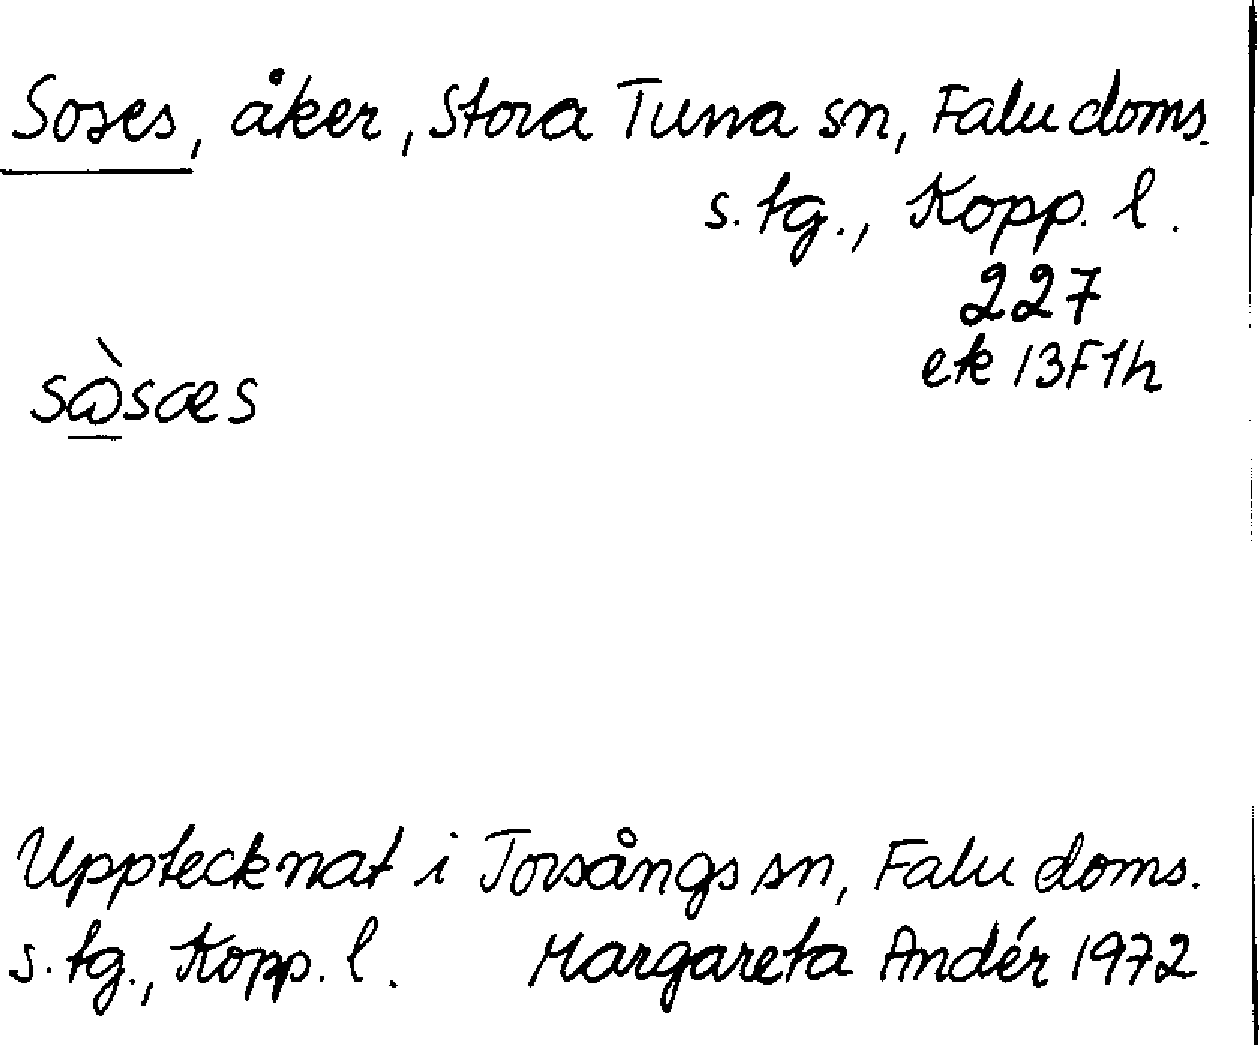 Soses, åker, Stora Tuna sn, Falu doms.
s. tg., Kopp. l.
227
ek 13F1h
sὼsæs
Upptecknat i Torsångs sn, Falu doms.
s. tg., Kopp. l. Margareta Andér 1972